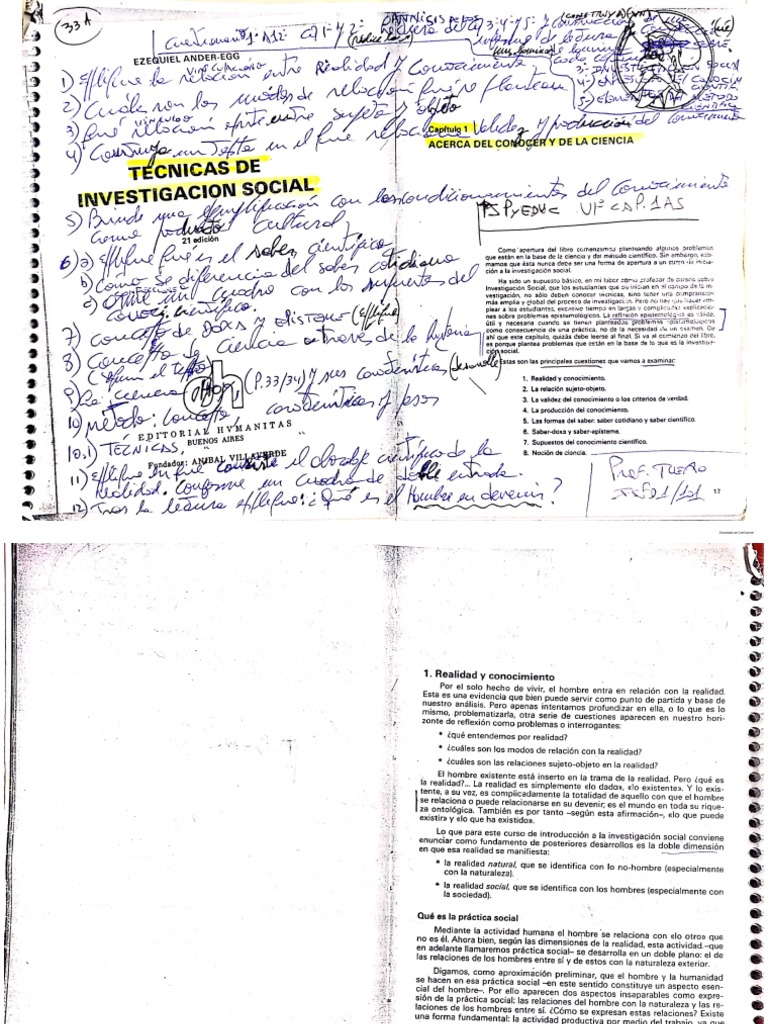 33A
Cuestionario 1-A12: CAP 1 y 2:
EZEQUIEL ANDER-EGG
1) Explique la relación entre Realidad y Conocimiento
vinculación
2) Cuáles son los modos de relación que se plantean
3) Qué relación existe entre sujeto y objeto
vínculo
Capítulo 1
ACERCA DEL CONOCER Y DE LA CIENCIA
4) Construya un texto en el que relacione validez y producción del conocimiento
TECNICAS DE
INVESTIGACION SOCIAL
5) Brinde una ejemplificación con los condicionamientos del Conocimiento
como producto cultural
21 edición
6) a) Explique que es el saber científico
b) Cómo se diferencia del saber cotidiano
c) Arme un cuadro con los supuestos del
conoc. científico.
7) concepto de Doxa y episteme (explique)
8) Concepto de Ciencia a través de la historia
9) La ciencia (P.33/34) y sus características (desarrolle)
10) método: Concepto características y pasos
EDITORIAL HVMANITAS
BUENOS AIRES
10.1) TÉCNICAS,
Fundador: ANIBAL VILLAVERDE
11) Explique en que consiste el abordaje científico de la
realidad. Conforme un cuadro de doble entrada.
12) Tras la lectura explique: ¿Qué es el Hombre en devenir?
Como apertura del libro comenzamos planteando algunos problemas
que están en la base de la ciencia y del método científico. Sin embargo, esti-
mamos que ésta nunca debe ser una forma de apertura a un curso de inicia-
ción a la investigación social.
Ha sido un supuesto básico, en mi labor como profesor de cursos sobre
Investigación Social, que los estudiantes que se inician en el campo de la in-
vestigación, no sólo deben conocer técnicas, sino tener una comprensión
más amplia y global del proceso de investigación. Pero no hay que hacer em-
plear a los estudiantes, excesivo tiempo en largas y complicadas explicacio-
nes sobre problemas epistemológicos. La reflexión epistemológica es válida,
útil y necesaria cuando se tienen planteados problemas epistemológicos
como consecuencia de una práctica, no de la necesidad de un examen. De
ahí que este capítulo, quizás debe leerse al final. Si va al comienzo del libro,
es porque plantea problemas que están en la base de lo que es la investiga-
ción social.
Estas son las principales cuestiones que vamos a examinar:
1. Realidad y conocimiento.
2. La relación sujeto-objeto.
3. La validez del conocimiento o los criterios de verdad.
4. La producción del conocimiento.
5. Las formas del saber: saber cotidiano y saber científico.
6. Saber-doxa y saber-episteme.
7. Supuestos del conocimiento científico.
8. Noción de ciencia.
17
1. Realidad y conocimiento
Por el solo hecho de vivir, el hombre entra en relación con la realidad.
Esta es una evidencia que bien puede servir como punto de partida y base de
nuestro análisis. Pero apenas intentamos profundizar en ella, o lo que es lo
mismo, problematizarla, otra serie de cuestiones aparecen en nuestro hori-
zonte de reflexión como problemas o interrogantes:
* ¿qué entendemos por realidad?
* ¿cuáles son los modos de relación con la realidad?
* ¿cuáles son las relaciones sujeto-objeto en la realidad?
El hombre existente está inserto en la trama de la realidad. Pero ¿qué es
la realidad?... La realidad es simplemente «lo dado», «lo existente». Y lo exis-
tente, a su vez, es complicadamente la totalidad de aquello con que el hombre
se relaciona o puede relacionarse en su devenir; es el mundo en toda su rique-
za ontológica. También es por tanto –según esta afirmación–, «lo que puede
existir» y «lo que ha existido».
Lo que para este curso de introducción a la investigación social conviene
enunciar como fundamento de posteriores desarrollos es la doble dimensión
en que esa realidad se manifiesta:
* la realidad natural, que se identifica con lo no-hombre (especialmente
con la naturaleza).
* la realidad social, que se identifica con los hombres (especialmente con
la sociedad).
Qué es la práctica social
Mediante la actividad humana el hombre se relaciona con «lo otro» que
no es él. Ahora bien, según las dimensiones de la realidad, esta actividad –que
en adelante llamaremos práctica social– se desarrolla en un doble plano: el de
las relaciones de los hombres entre sí y de estos con la naturaleza exterior.
Digamos, como aproximación preliminar, que el hombre y la humanidad
se hacen en esa práctica social –en este sentido constituye un aspecto esen-
cial del hombre–. Por ello aparecen dos aspectos inseparables como expre-
sión de la práctica social: las relaciones del hombre con la naturaleza y las re-
laciones de los hombres entre sí. ¿Cómo se expresan estas relaciones? Existe
una forma fundamental: la actividad productiva por medio del trabajo, ya que